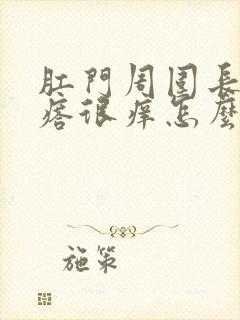 肛門周圍長
痞很痒怎麼
施策